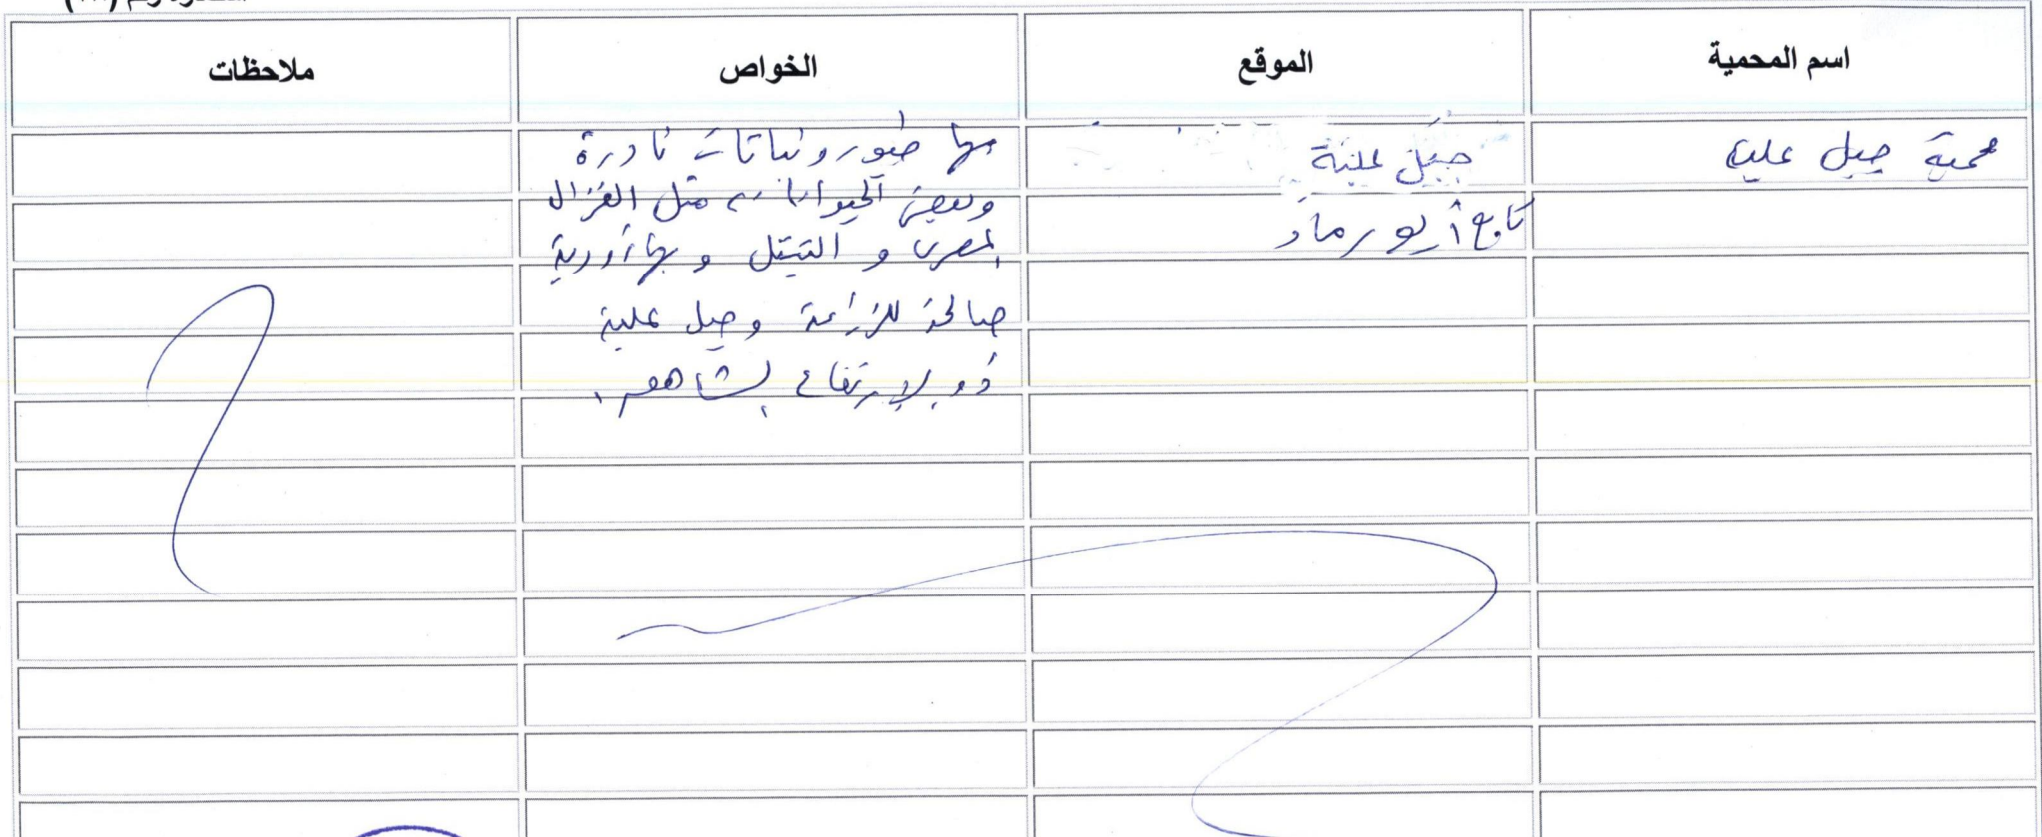 اسم المحمية الموقع الخواص ملاحظات
محمية جبل علبة جبل علبة بها طيور ونباتات نادرة
تابع أبو رماد وبعض الحيوانات مثل الغزال
المصرى و التيتل و بها أودية
صالحة للزراعة وجبل علبة
ذو الارتفاع الشاهق.